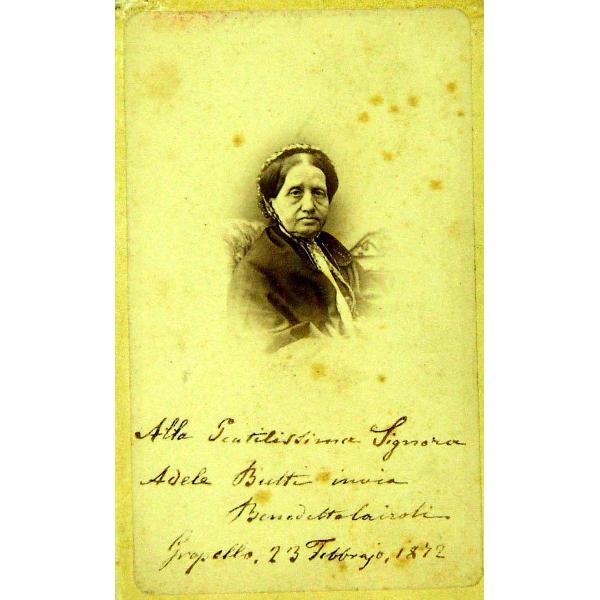 Alla Gentilissima Signora
Adele Butti invia
Benedetto Cairoli
Gropello, 23 Febbrajo, 1872